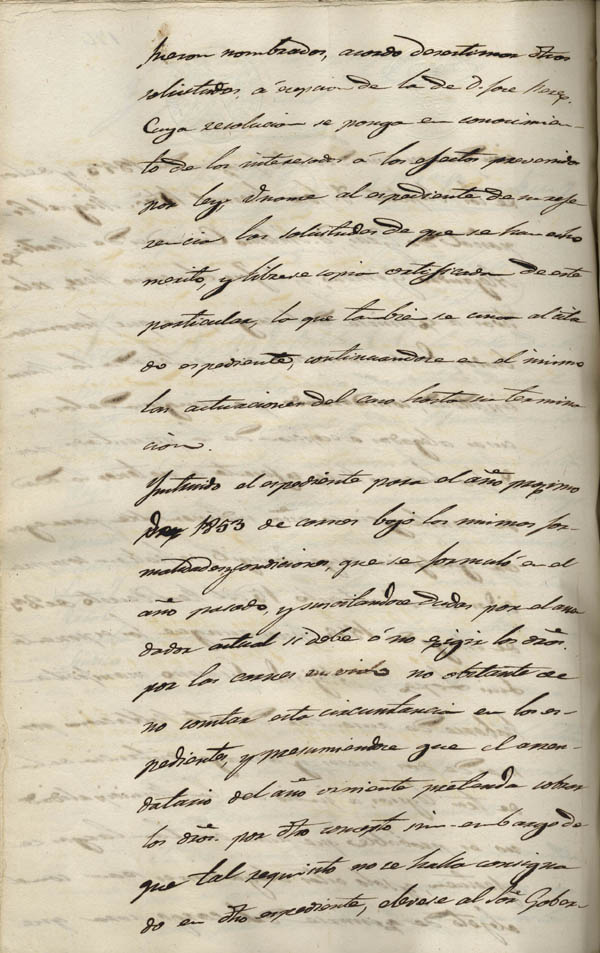 fueron nombrados, acordo desestimar dhas
solicitudes, á escepcion de la de D. Jose Perez.
Cuya resolucion se ponga en conocimien-
to de los interesados á los efectos prevenidos
por ley, unanse al espediente de su refe
rencia las solicitudes de que se ha echo
merito, y librese copia certificada de este
particular, lo que tambien se una al cita
do espediente, continuandose en el mismo
las actuaciones del caso hasta su termina
cion.
Instruido el espediente para el año procsimo
1853 de carnes bajo las mismas for-
malidades y condiciones, que se formuló en el
año pasado, y suscitandose dudas por el arren
dador actual si debe ó no ecsigir los dros.
por las carnes en vivo no obstante de
no constar esta circunstancia en los es-
pedientes, y presumiendose que el arren-
datario del año corriente pretenda cobrar
los dros. por dho concepto sin embargo de
que tal requisito no se halla consigna
do en dho espediente, elevese al Sor. Gober-